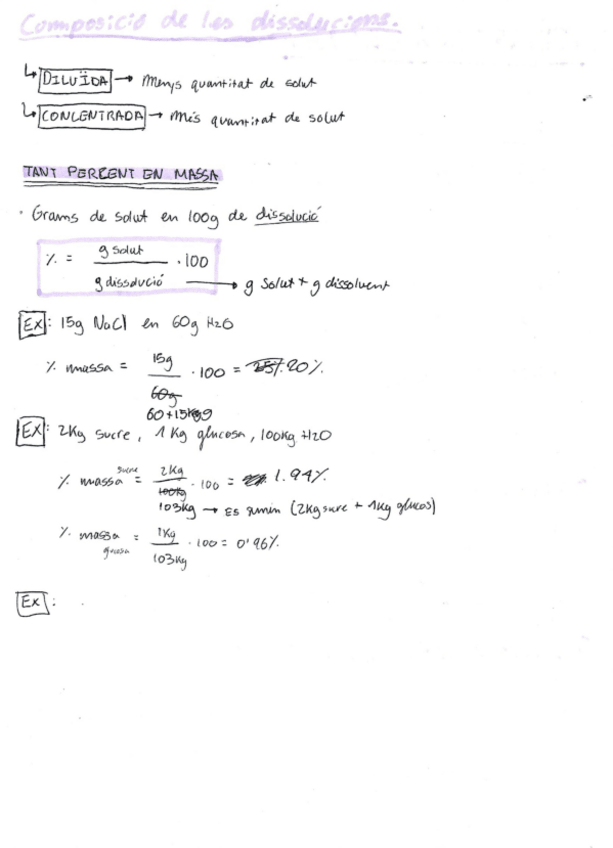 Composició de les dissolucions.
↳ DILUÏDA → Menys quantitat de solut
↳ CONCENTRADA → Més quantitat de solut
TANT PERCENT EN MASSA
· Grams de solut en 100g de dissolució
% = g solut / g dissolució · 100
→ g solut + g dissolvent
EX: 15g NaCl en 60g H2O
% massa = 15g / 60g · 100 = 25% 20%
60+15
EX: 2Kg sucre, 1 Kg glucosa, 100Kg H2O
% massa sucre = 2Kg / 100Kg · 100 = 1.94%
103Kg → Es (2Kg sucre + 1Kg glucos)
% massa glucosa = 1Kg / 103Kg · 100 = 0'96%
Ex: